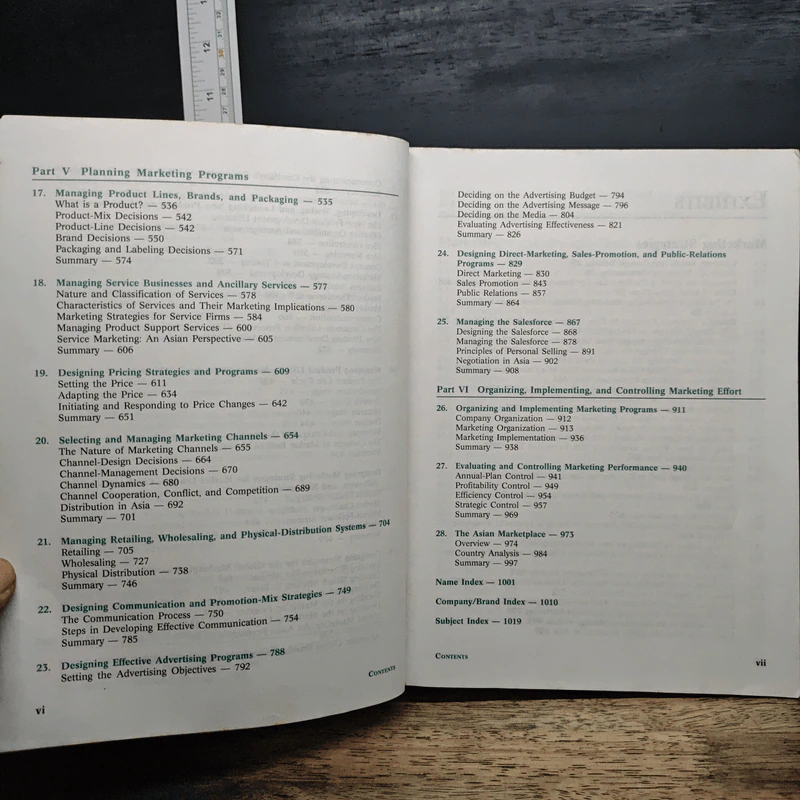 Part V Planning Marketing Programs
17. Managing Product Lines, Brands, and Packaging — 535
What is a Product? — 536
Product-Mix Decisions — 542
Product-Line Decisions — 542
Brand Decisions — 550
Packaging and Labeling Decisions — 571
Summary — 574
18. Managing Service Businesses and Ancillary Services — 577
Nature and Classification of Services — 578
Characteristics of Services and Their Marketing Implications — 580
Marketing Strategies for Service Firms — 584
Managing Product Support Services — 600
Service Marketing: An Asian Perspective — 605
Summary — 606
19. Designing Pricing Strategies and Programs — 609
Setting the Price — 611
Adapting the Price — 634
Initiating and Responding to Price Changes — 642
Summary — 651
20. Selecting and Managing Marketing Channels — 654
The Nature of Marketing Channels — 655
Channel-Design Decisions — 664
Channel-Management Decisions — 670
Channel Dynamics — 680
Channel Cooperation, Conflict, and Competition — 689
Distribution in Asia — 692
Summary — 701
21. Managing Retailing, Wholesaling, and Physical-Distribution Systems — 704
Retailing — 705
Wholesaling — 727
Physical Distribution — 738
Summary — 746
22. Designing Communication and Promotion-Mix Strategies — 749
The Communication Process — 750
Steps in Developing Effective Communication — 754
Summary — 785
23. Designing Effective Advertising Programs — 788
Setting the Advertising Objectives — 792
Contents
vi
Deciding on the Advertising Budget — 794
Deciding on the Advertising Message — 796
Deciding on the Media — 804
Evaluating Advertising Effectiveness — 821
Summary — 826
24. Designing Direct-Marketing, Sales-Promotion, and Public-Relations
Programs — 829
Direct Marketing — 830
Sales Promotion — 843
Public Relations — 857
Summary — 864
25. Managing the Salesforce — 867
Designing the Salesforce — 868
Managing the Salesforce — 878
Principles of Personal Selling — 891
Negotiation in Asia — 902
Summary — 908
Part VI Organizing, Implementing, and Controlling Marketing Effort
26. Organizing and Implementing Marketing Programs — 911
Company Organization — 912
Marketing Organization — 913
Marketing Implementation — 936
Summary — 938
27. Evaluating and Controlling Marketing Performance — 940
Annual-Plan Control — 941
Profitability Control — 949
Efficiency Control — 954
Strategic Control — 957
Summary — 969
28. The Asian Marketplace — 973
Overview — 974
Country Analysis — 984
Summary — 997
Name Index — 1001
Company/Brand Index — 1010
Subject Index — 1019
Contents
vii
12
11